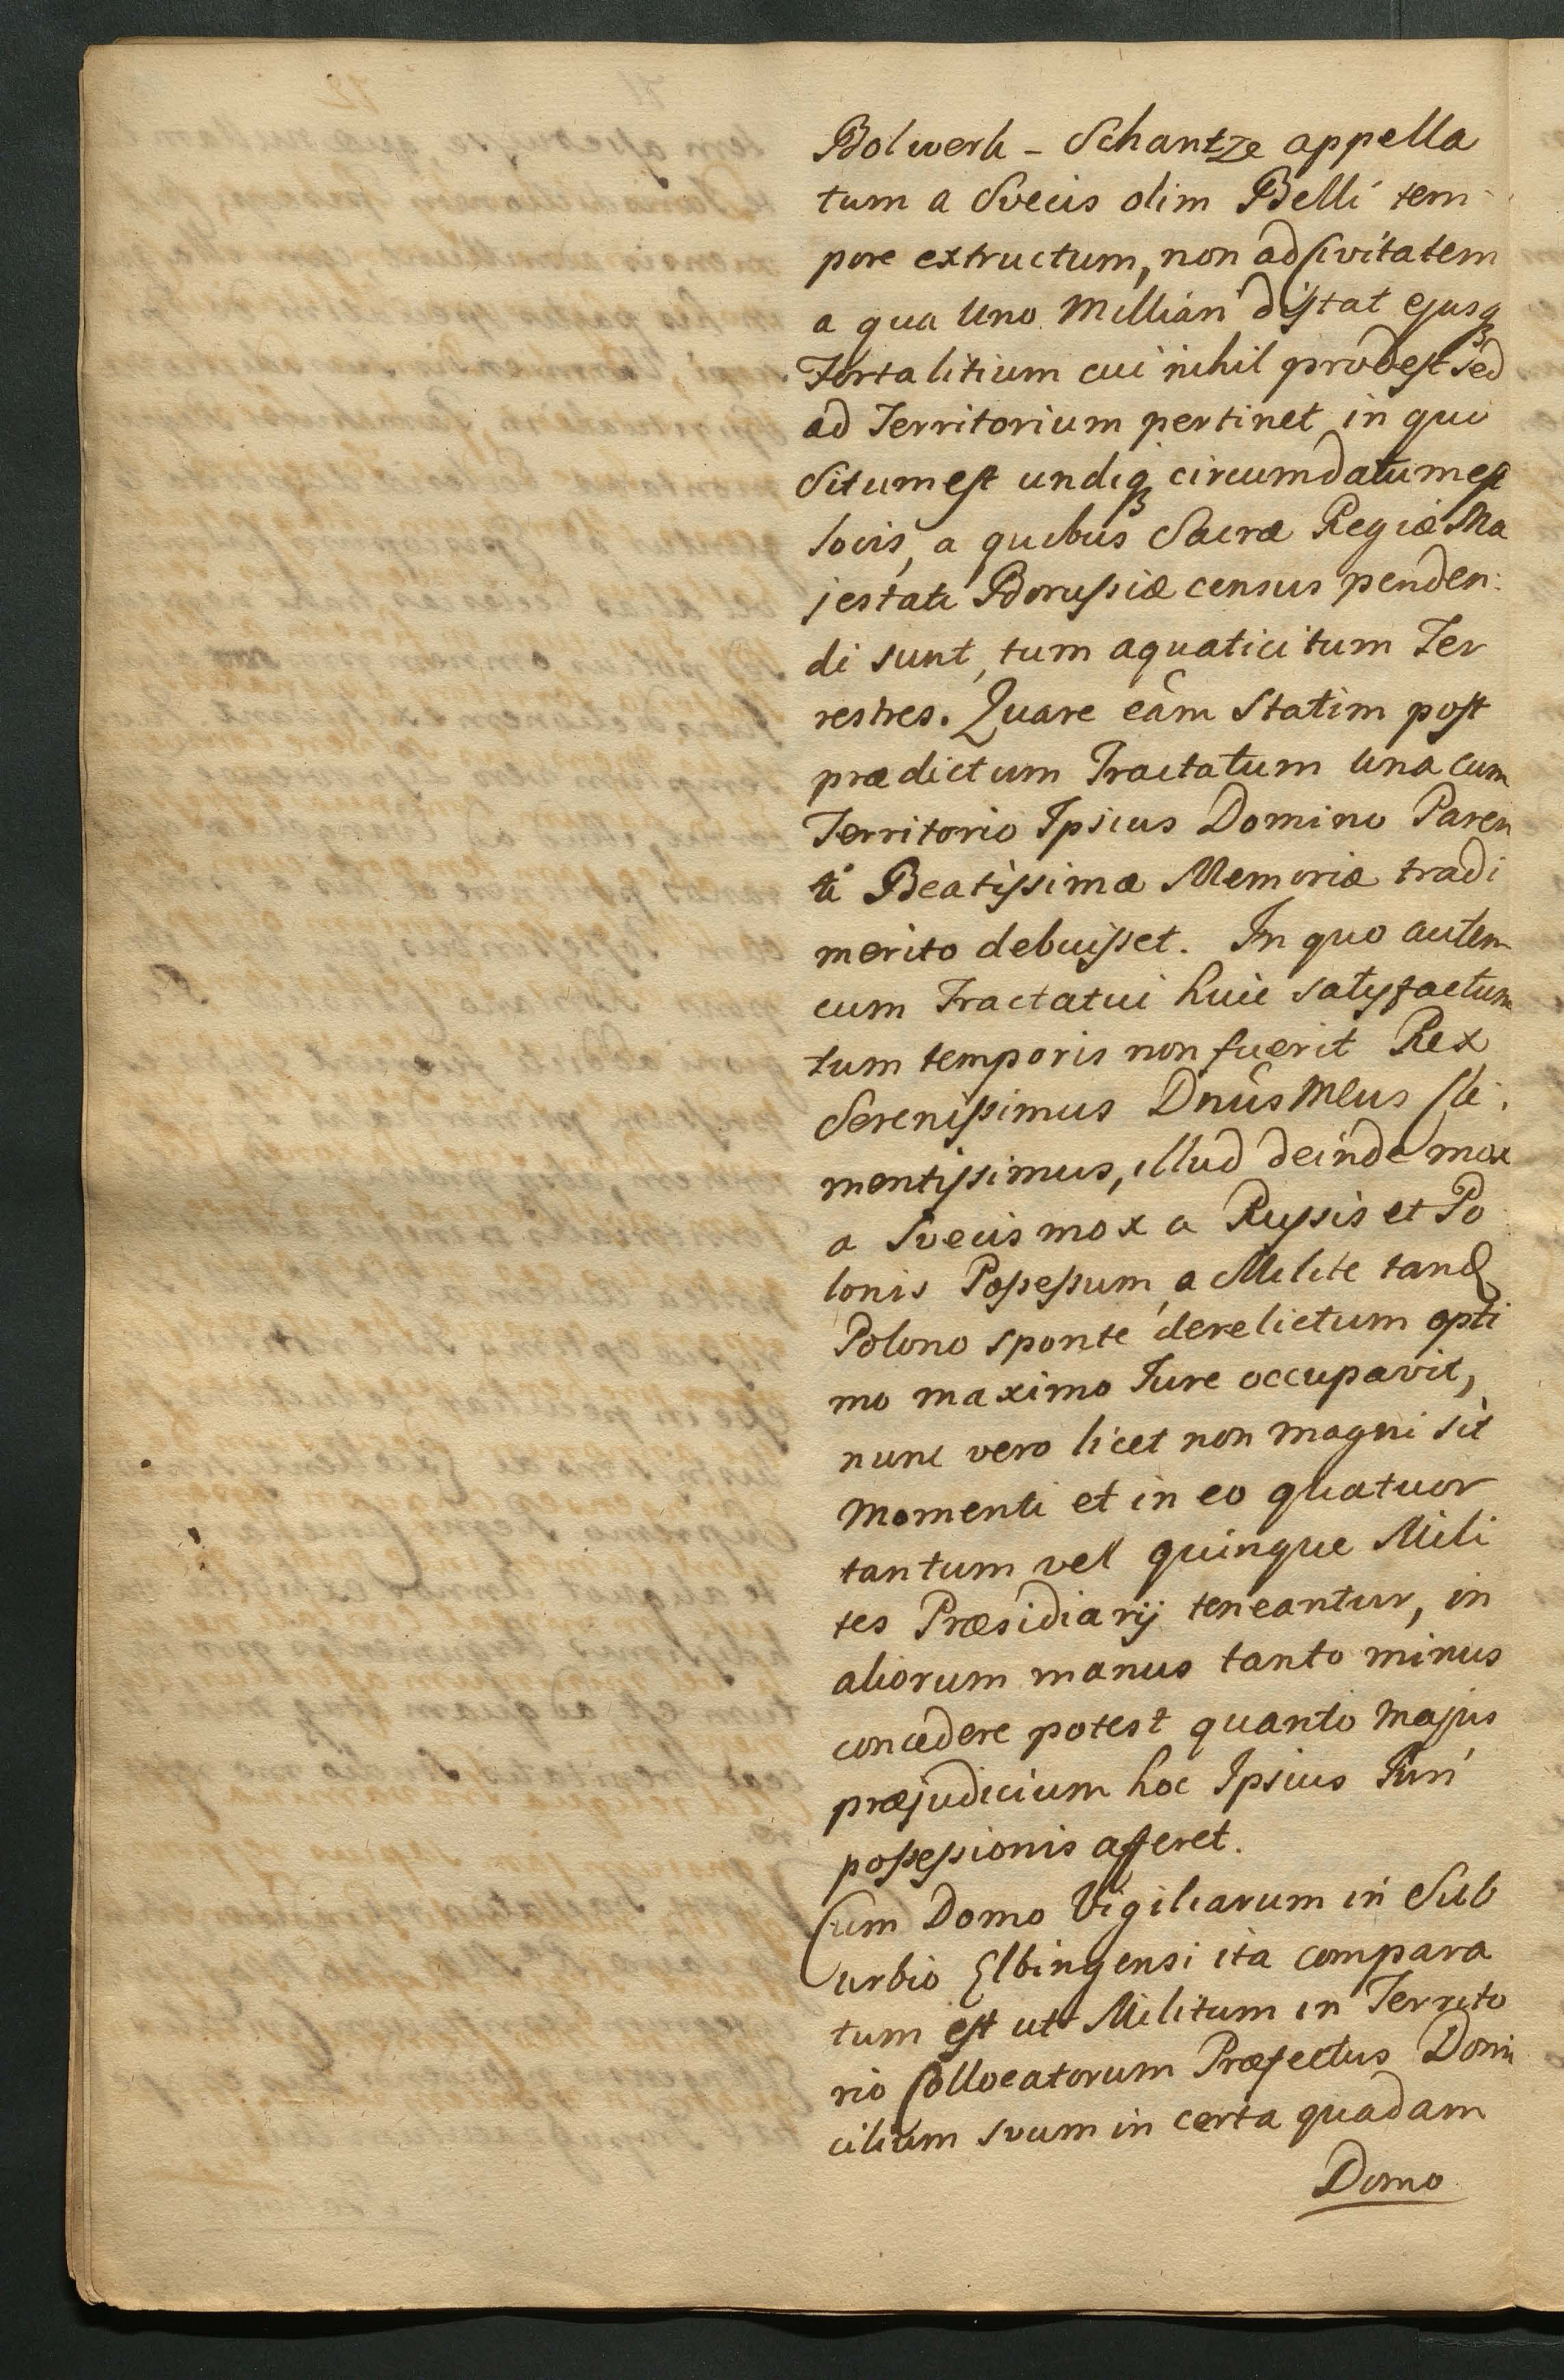 Bolwerk - Schantze appella
tum a Svecis olim Belli tem-
pore extructum, non ad Civitatem
a qua Uno Milliari distat ejusq̃
Fortalitium cui nihil prodest sed
ad Territorium pertinet in quo
Situm est undiq̃ circumdatum est
locis, a quibus Sacræ Regiæ Ma
jestati Borussiæ census penden:
di sunt, tum aquatici tum Ter
restres. Quare eam Statim post
prædictum Tractatum una cum
Territorio Ipsius Domino Paren
ti Beatissimæ Memoriæ tradi
merito debuisset. In quo autem
cum Tractatui huic satisfactum
tum temporis non fuerit Rex
Serenissimus Dnus Meus Cle:
mentissimus, illud deinde mox
a Svecis mox a Russis et Po
lonis Possessum, a Milite tand
Polono sponte derelictum opti
mo maximo Jure occupavit,
nunc vero licet non magni sit
Momenti et in eo quatuor
tantum vel quinque Mili
tes Præsidiarij teneantur, in
aliorum manus tanto minus
concedere potest quanto majus
præjudicium hoc Ipsius Juri
possessionis afferet.
Cum Domo Vigiliarum in Sub
urbio Elbingensi ita compara
tum est utt Militum in Territo
rio Collocatorum Præfectus Domi
cilium svum in certa quadam
Domo